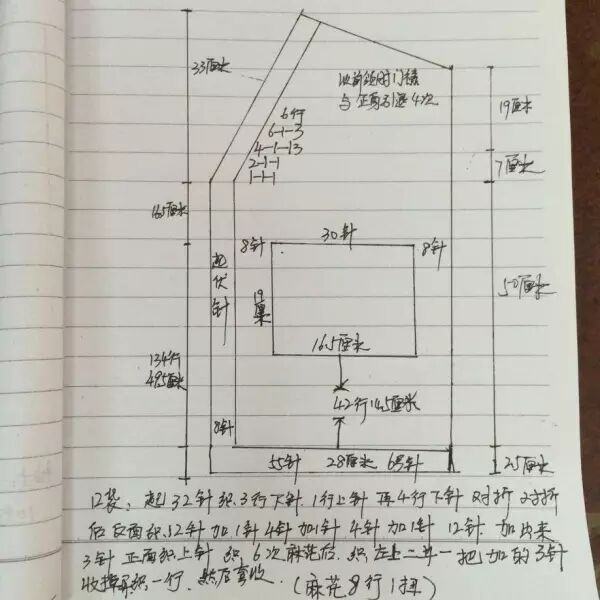 33厘米
与正身引退4次
19厘米
6行
6-1-3
4-1-13
2-1-1
1-1-1
7厘米
16.5厘米
8针
30针
8针
起伏针
19厘米
50厘米
16.5厘米
134行
49.5厘米
42行14.5厘米
8针
55针 28厘米 6号针
2.5厘米
口袋: 起32针织3行下针 1行上针 再4行下针 对折 对折
后反面织12针加1针4针加1针 4针加1针 12针. 加出来
3针 正面织上针 织6次麻花后. 织左上二并一把加的3针
收掉再织一行. 然后套收. (麻花8行1扭)